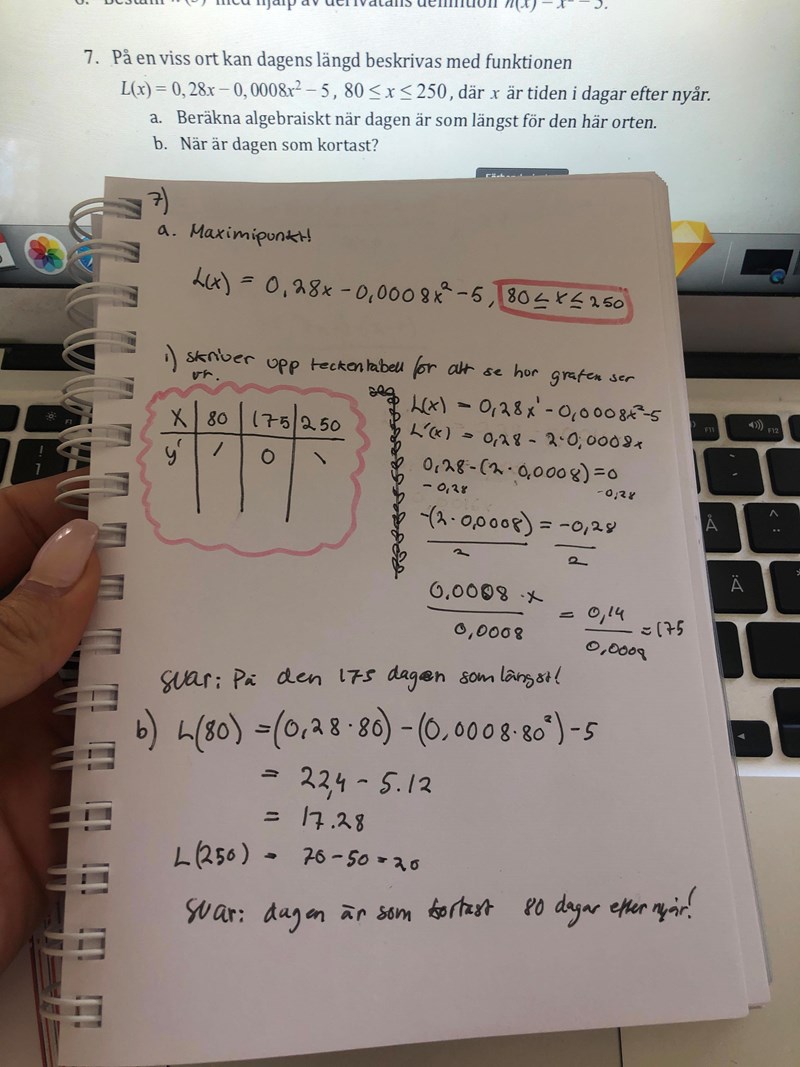 7. På en viss ort kan dagens längd beskrivas med funktionen
L(x) = 0,28x − 0,0008x² − 5, 80 ≤ x ≤ 250, där x är tiden i dagar efter nyår.
a. Beräkna algebraiskt när dagen är som längst för den här orten.
b. När är dagen som kortast?
7)
a. Maximipunkt!
L(x) = 0,28x − 0,0008x² − 5, 80 ≤ x ≤ 250
i) skriver upp teckentabell för att se hur grafen ser
ur.
X 80 175 250
y' / 0 \
L(x) = 0,28x' − 0,0008x² − 5
L'(x) = 0,28 − 2·0,0008x
0,28 − (2·0,0008) = 0
−0,28 −0,28
−(2·0,0008) = −0,28
2 2
0,0008 · x = 0,14 = 175
0,0008 0,0008
svar: På den 175 dagen som längst!
b) L(80) = (0,28·80) − (0,0008·80²) − 5
= 22,4 − 5.12
= 17.28
L(250) = 70 − 50 = 20
svar: dagen är som kortast 80 dagar efter nyår!
F11
F12
F1
!
1
Å
^
¨
Ä